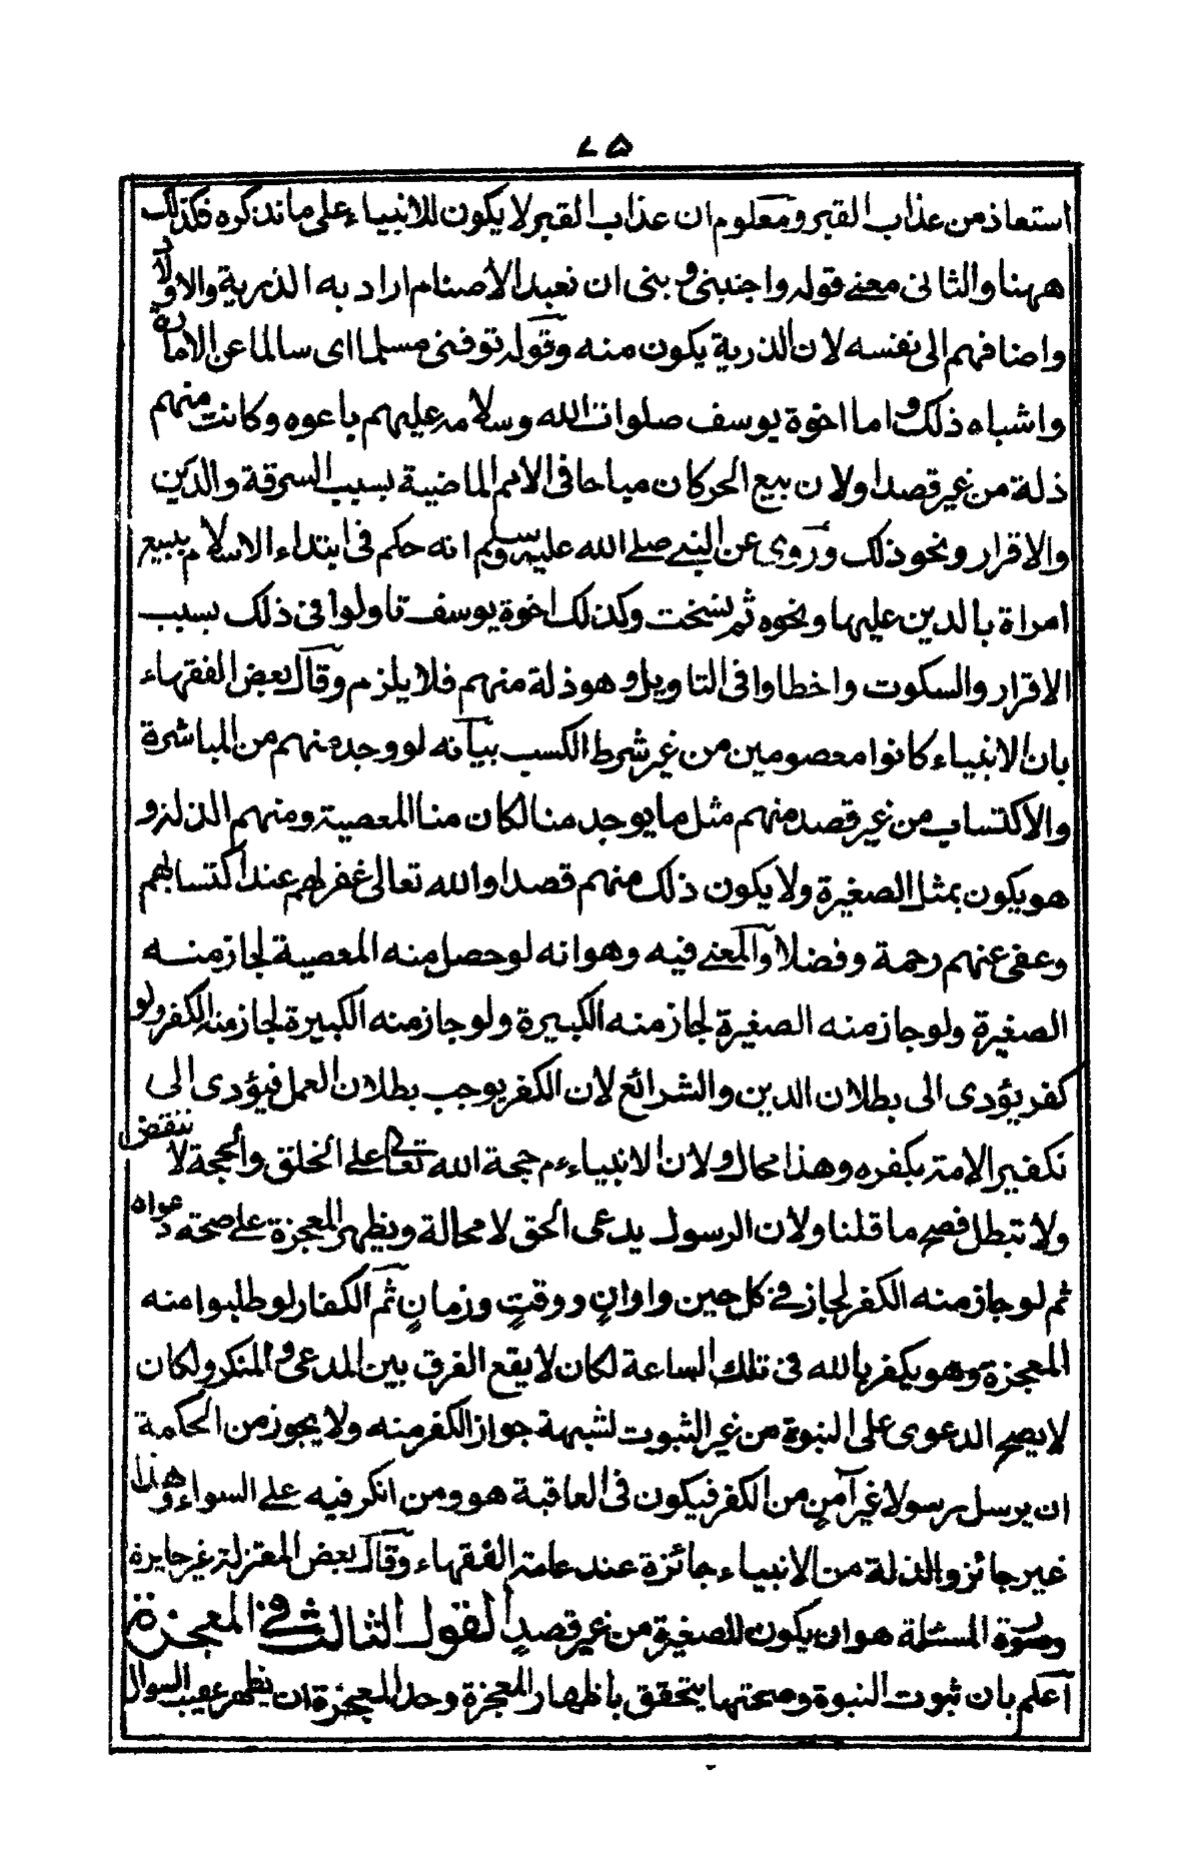 ٧٥
استعاذ من عذاب القبر ومعلوم ان عذاب القبر لا يكون للانبياء على ما نذكره فكذلك
ههنا والثانى معنى قوله واجنبنى وبنى ان نعبد الاصنام اراد به الذرية والاولاد
واضافهم الى نفسه لان الذرية يكون منه وقوله توفنى مسلما اى سالما عن الامارة
واشباه ذلك واما اخوة يوسف صلوات الله وسلامه عليهم باعوه وكانت منهم
ذلة من غير قصد اولان بيع الحر كان مباحا فى الامم الماضية بسبب السرقة والدين
والاقرار ونحو ذلك وروى عن النبى صلى الله عليه وسلم انه حكم فى ابتداء الاسلام ببيع
امراة بالدين عليها ونحوه ثم نسخت وكذلك اخوة يوسف تاولوا فى ذلك بسبب
الاقرار والسكوت واخطاوا فى التاويل وهو ذلة منهم فلا يلزم وقال بعض الفقهاء
بان الانبياء كانوا معصومين من غير شرط الكسب بيانه لو وجد منهم من المباشرة
والاكتساب من غير قصد منهم مثل ما يوجد منا لكان منا المعصية ومنهم الذلة و
هو يكون بمثل الصغيرة ولا يكون ذلك منهم قصدا والله تعالى غفر لهم عند اكتسابهم
وعفى عنهم رحمة وفضلا والمعنى فيه وهو انه لو حصل منه المعصية لجاز منه
الصغيرة ولو جاز منه الصغيرة لجاز منه الكبيرة ولو جاز منه الكبيرة لجاز منه الكفر ولو
كفر يؤدى الى بطلان الدين والشرائع لان الكفر يوجب بطلان العمل فيؤدى الى
تكفير الامة بكفره وهذا محال ولان الانبياء ءم حجة الله تعالى على الخلق والحجة لا تنقض
ولا تبطل فصح ما قلنا ولان الرسول يدعى الحق لا محالة ويظهر المعجزة على صحة دعواه
ثم لو جاز منه الكفر لجاز فى كل حين واوانٍ ووقتٍ وزمانٍ ثم الكفار لو طلبوا منه
المعجزة وهو يكفر بالله فى تلك الساعة لكان لا يقع الفرق بين المدعى والمنكر ولكان
لا يصح الدعوى على النبوة من غير الثبوت لشبهة جواز الكفر منه ولا يجوز من الحكمة
ان يرسل رسولا غير آمنٍ من الكفر فيكون فى العاقبة هو ومن انكر فيه على السواء وهذا
غير جائز والذلة من الانبياء جائزة عند عامة الفقهاء وقال بعض المعتزلة غير جايزة
وصورة المسئلة هو ان يكون للصغيرة من غير قصدٍ القول الثالث فى المعجزة
اعلم بان ثبوت النبوة وصحتها يتحقق باظهار المعجزة وحد المعجزة ان يظهر عقيب السوال